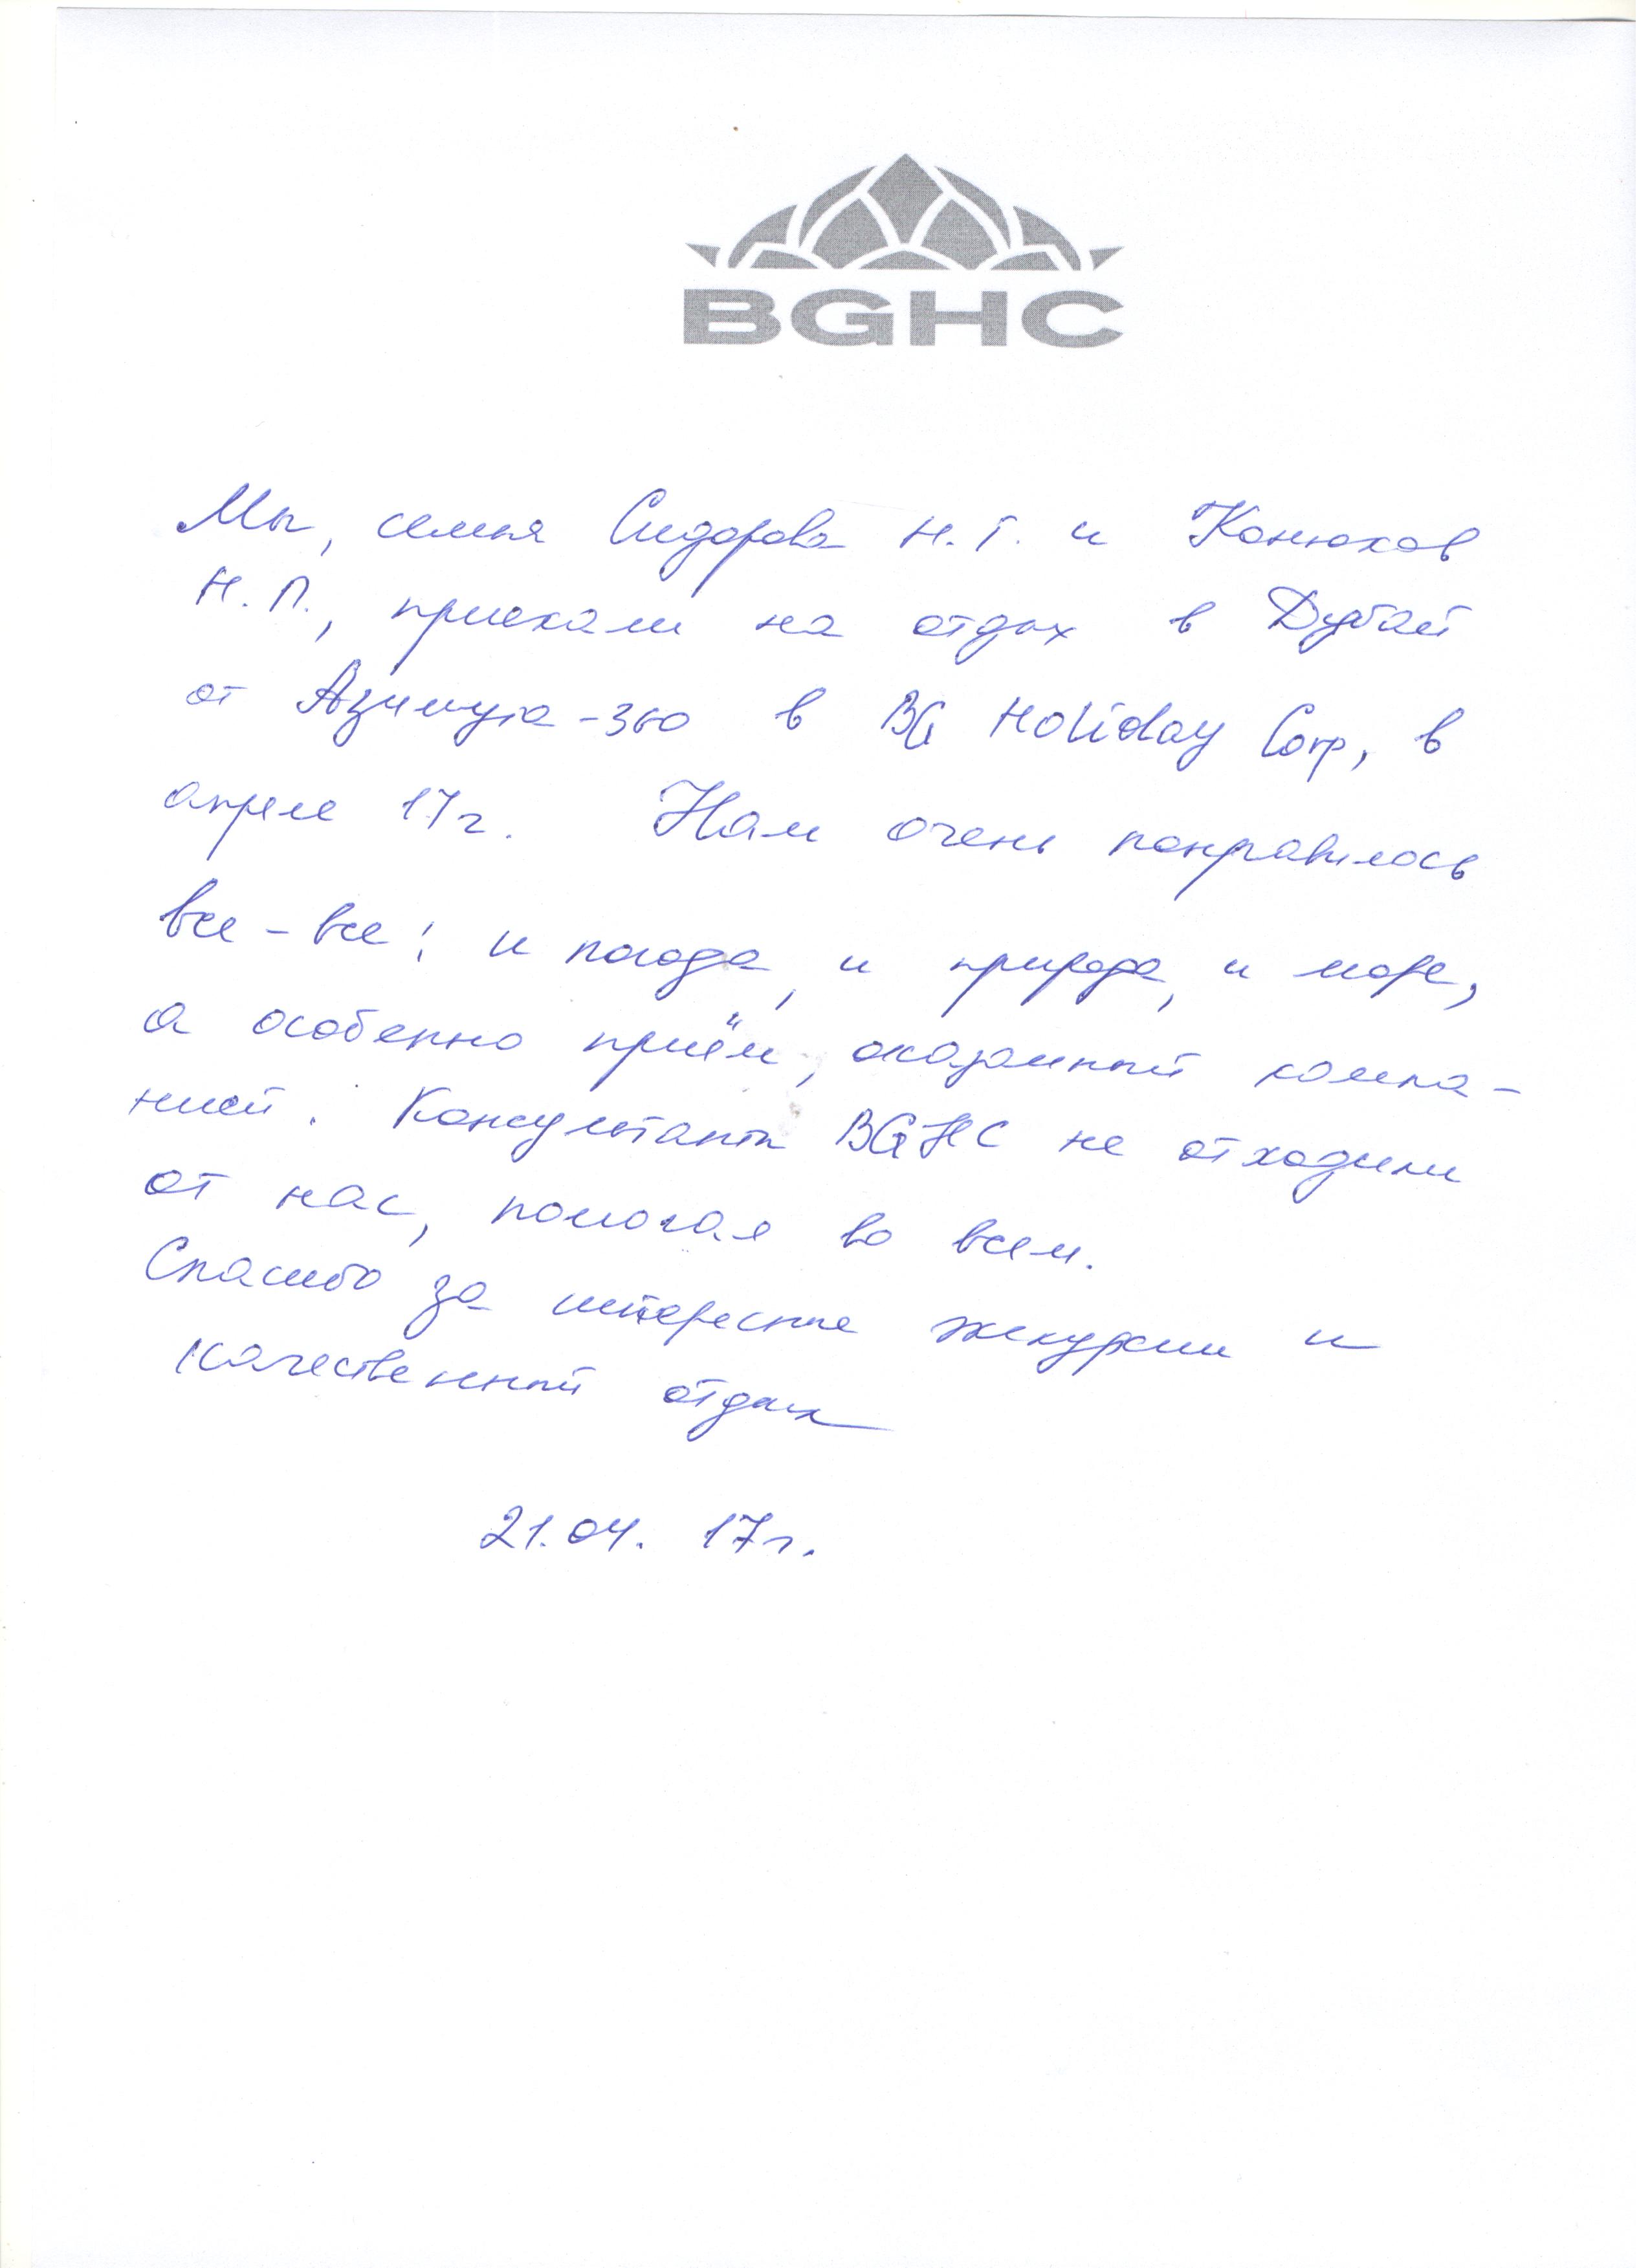 BGHC
Мы, семья Сидорова Н.Г. и Конюхов
Н.П., приехали на отдых в Дубай
от Азимута-360 в BG Holiday Corp, в
апреле 17г. Нам очень понравилось
все-все: и погода, и природа, и море,
а особенно приём, оказанный компа-
нией. Консультанты BGHC не отходили
от нас, помогая во всем.
Спасибо за интересные экскурсии и
качественный отдых
21.04. 17г.